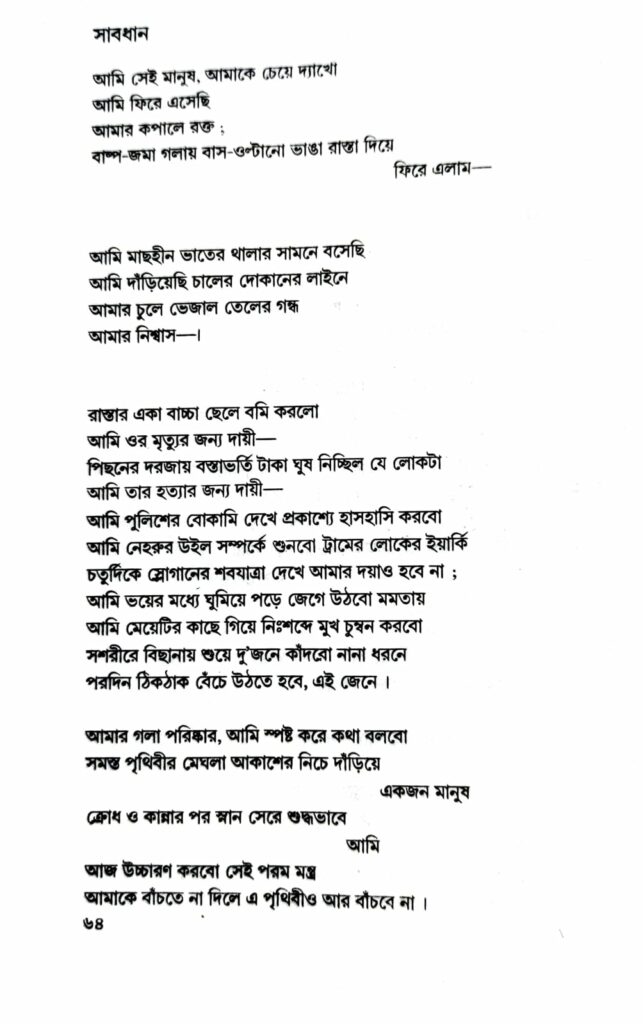 সাবধান
আমি সেই মানুষ, আমাকে চেয়ে দ্যাখো
আমি ফিরে এসেছি
আমার কপালে রক্ত ;
বাষ্প-জমা গলায় বাস-ওল্টানো ভাঙা রাস্তা দিয়ে
ফিরে এলাম—
আমি মাছহীন ভাতের থালার সামনে বসেছি
আমি দাঁড়িয়েছি চালের দোকানের লাইনে
আমার চুলে ভেজাল তেলের গন্ধ
আমার নিশ্বাস—।
রাস্তার একা বাচ্চা ছেলে বমি করলো
আমি ওর মৃত্যুর জন্য দায়ী—
পিছনের দরজায় বস্তাভর্তি টাকা ঘুষ নিচ্ছিল যে লোকটা
আমি তার হত্যার জন্য দায়ী—
আমি পুলিশের বোকামি দেখে প্রকাশ্যে হাসহাসি করবো
আমি নেহরুর উইল সম্পর্কে শুনবো ট্রামের লোকের ইয়ার্কি
চতুর্দিকে স্লোগানের শবযাত্রা দেখে আমার দয়াও হবে না ;
আমি ভয়ের মধ্যে ঘুমিয়ে পড়ে জেগে উঠবো মমতায়
আমি মেয়েটির কাছে গিয়ে নিঃশব্দে মুখ চুম্বন করবো
সশরীরে বিছানায় শুয়ে দু'জনে কাঁদবো নানা ধরনে
পরদিন ঠিকঠাক বেঁচে উঠতে হবে, এই জেনে ।
আমার গলা পরিষ্কার, আমি স্পষ্ট করে কথা বলবো
সমস্ত পৃথিবীর মেঘলা আকাশের নিচে দাঁড়িয়ে
একজন মানুষ
ক্রোধ ও কান্নার পর স্নান সেরে শুদ্ধভাবে
আমি
আজ উচ্চারণ করবো সেই পরম মন্ত্র
আমাকে বাঁচতে না দিলে এ পৃথিবীও আর বাঁচবে না ।
৬৪